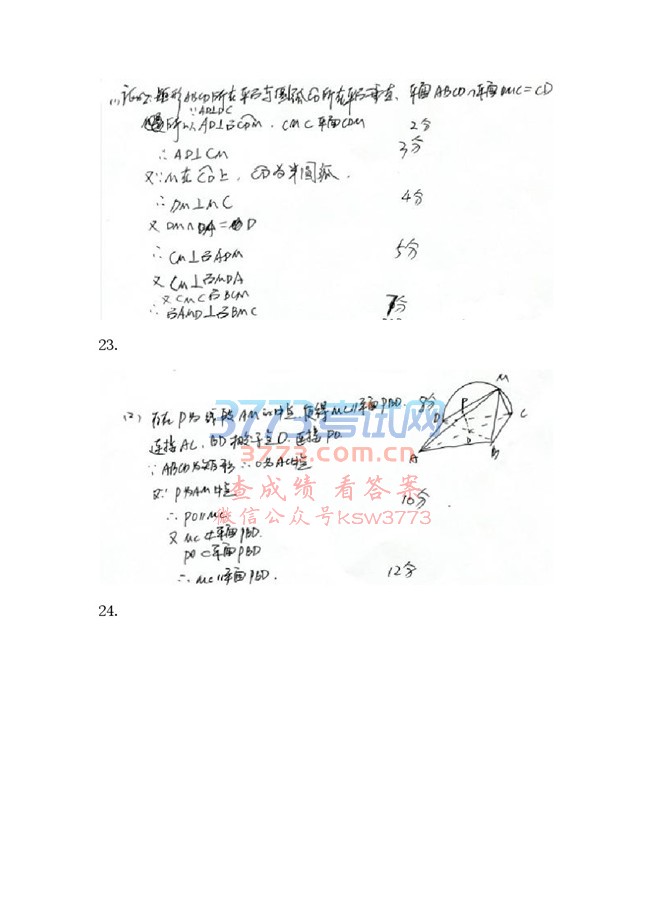 (1) 证明: 矩形ABCD所在平面与圆弧CD所在平面垂直, 平面ABCD∩平面DMC=CD
∵AD⊥DC
所以AD⊥面CDM, CM⊂平面CDM 2分
∴AD⊥CM 3分
又∵M在CD上, CD为半圆弧.
∴DM⊥MC 4分
又DM∩DA=D
∴CM⊥面ADM 5分
又CM⊥面MDA
又CM⊂面BCM
∴面AMD⊥面BMC 7分
23.
(2) 存在P为线段AM的中点 使得MC∥平面PBD. 8分
连接AC, BD相交于点O, 连接PO
∵ABCD为矩形 ∴O为AC中点
又∵P为AM中点 10分
∴PO∥MC
又MC⊄平面PBD
PO⊂平面PBD
∴MC∥平面PBD. 12分
M
P
D
C
O
A
B
3773考试网
3773.com.cn
查成绩 看答案
微信公众号ksw3773
24.